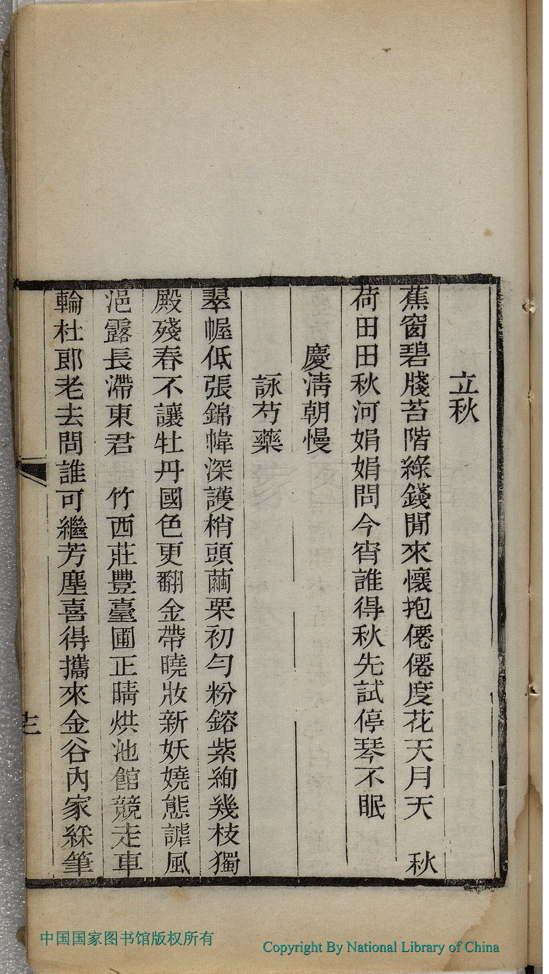 立秋
蕉窗碧牋苔階綠錢閒來懷抱僊僊度花天月天　秋
荷田田秋河娟娟問今宵誰得秋先試停琴不眠
慶清朝慢
詠芍藥
翠幄低張錦幃深護梢頭繭栗初勻粉鎔紫絢幾枝獨
殿殘春不讓牡丹國色更翻金帶曉妝新妖嬈態謔風
浥露長滯東君　竹西莊豐臺圃正晴烘池館競走車
輪杜郎老去問誰可繼芳塵喜得攜來金谷內家綵筆
中国国家图书馆版权所有
Copyright By National Library of China